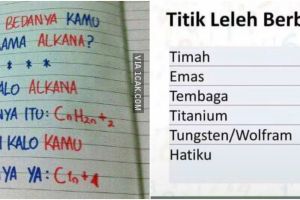 BEDANYA KAMU
AMA ALKANA?
* * *
ALO ALKANA
NYA ITU: CnH2n+2
KALO KAMU
YA YA: C1n+1
VIA 1CAK.COM
Titik Leleh Berb
Timah
Emas
Tembaga
Titanium
Tungsten/Wolfram
Hatiku